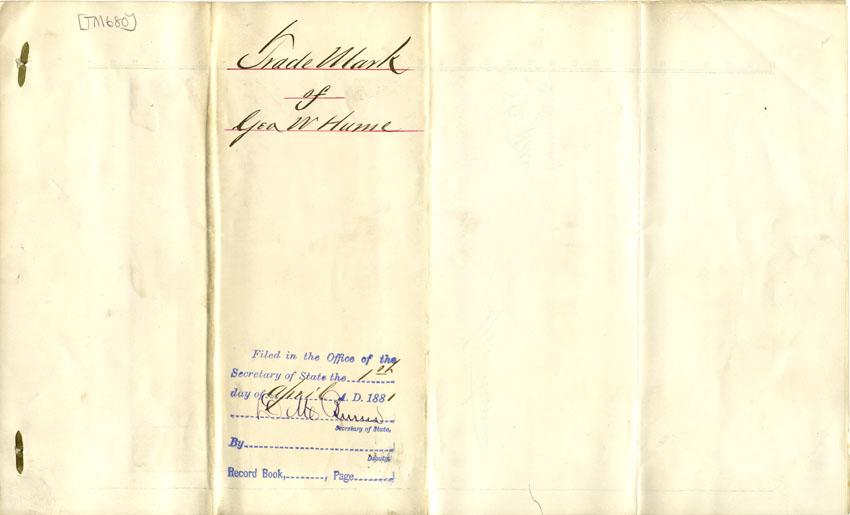 [TM680]
Trade Mark
of
Geo W Hume
Filed in the Office of the
Secretary of State the 1st
day of April A. D. 1881
Secretary of State.
By
Deputy.
Record Book, , Page